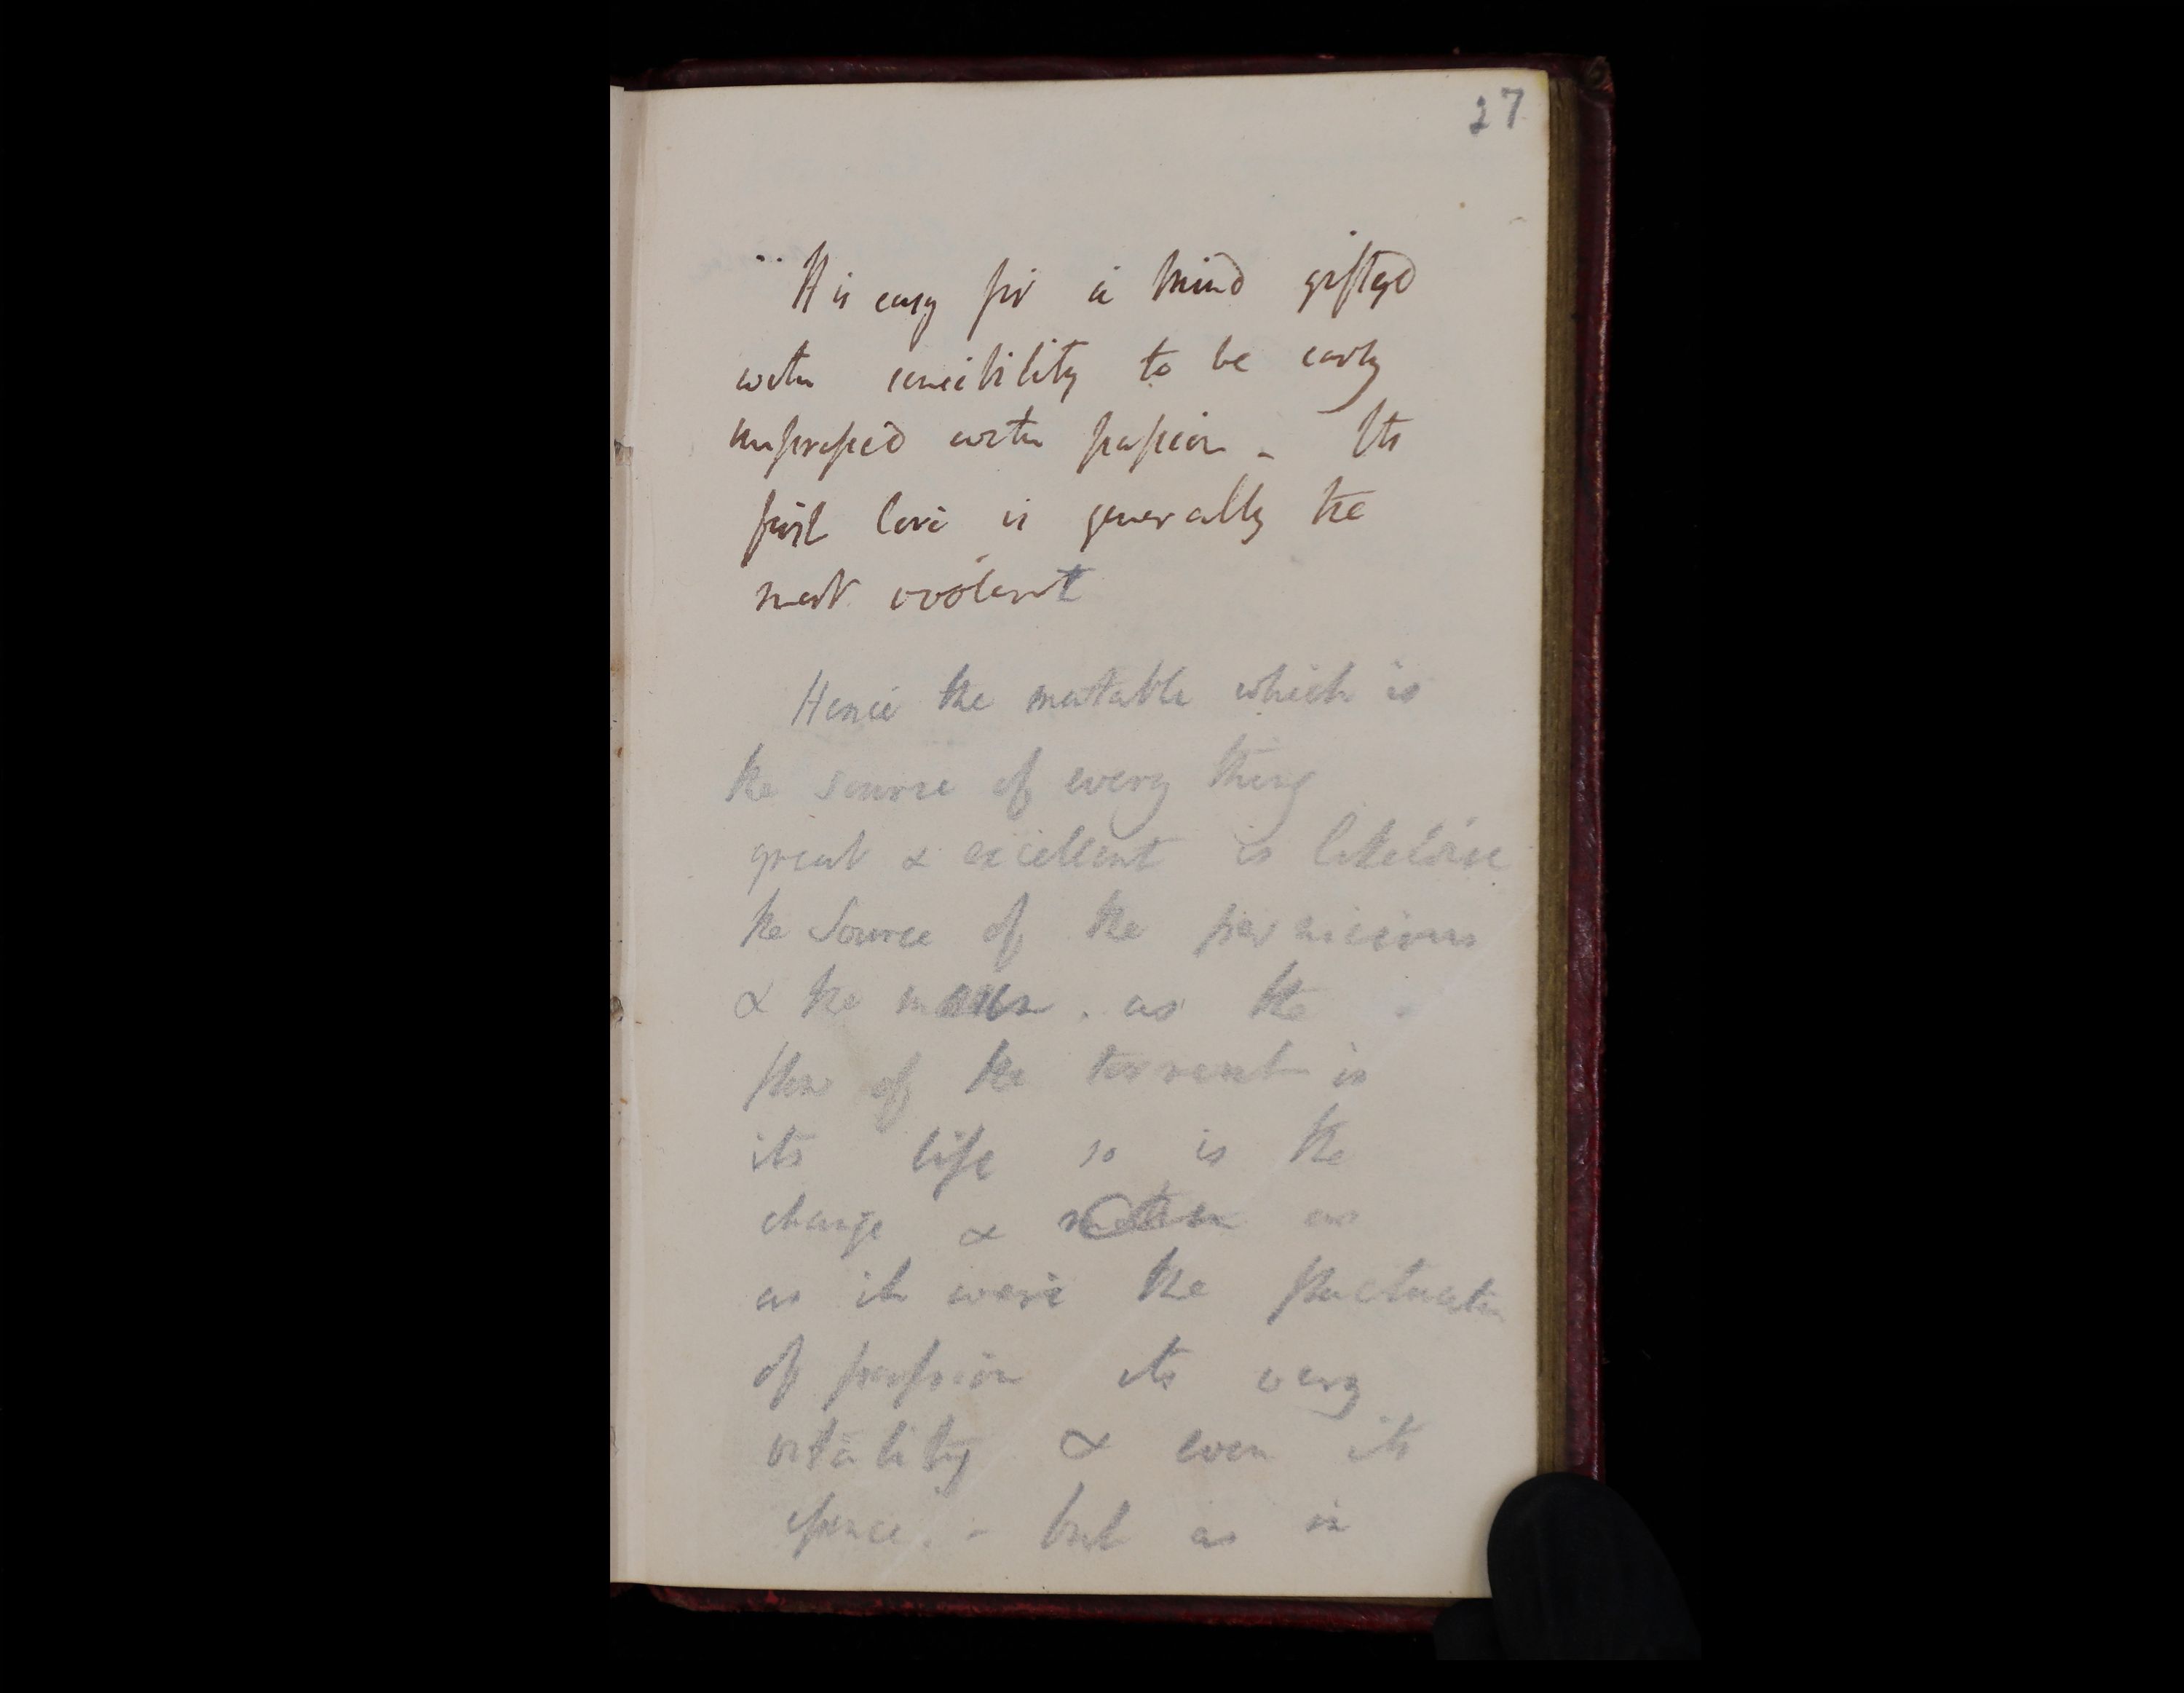 27
"It is easy for a mind gifted
with sensibility to be early
impressed with passion - Its
first love is generally the
most violent
Hence the mutable which is
the source of every thing
great & excellent is likewise
the Source of the pernicious
& the mean. as the
flow of the torrent is
its life so is the
change & motion or
as it were the fluctuation
of passion its very
vitality & even its
essence. - but as in